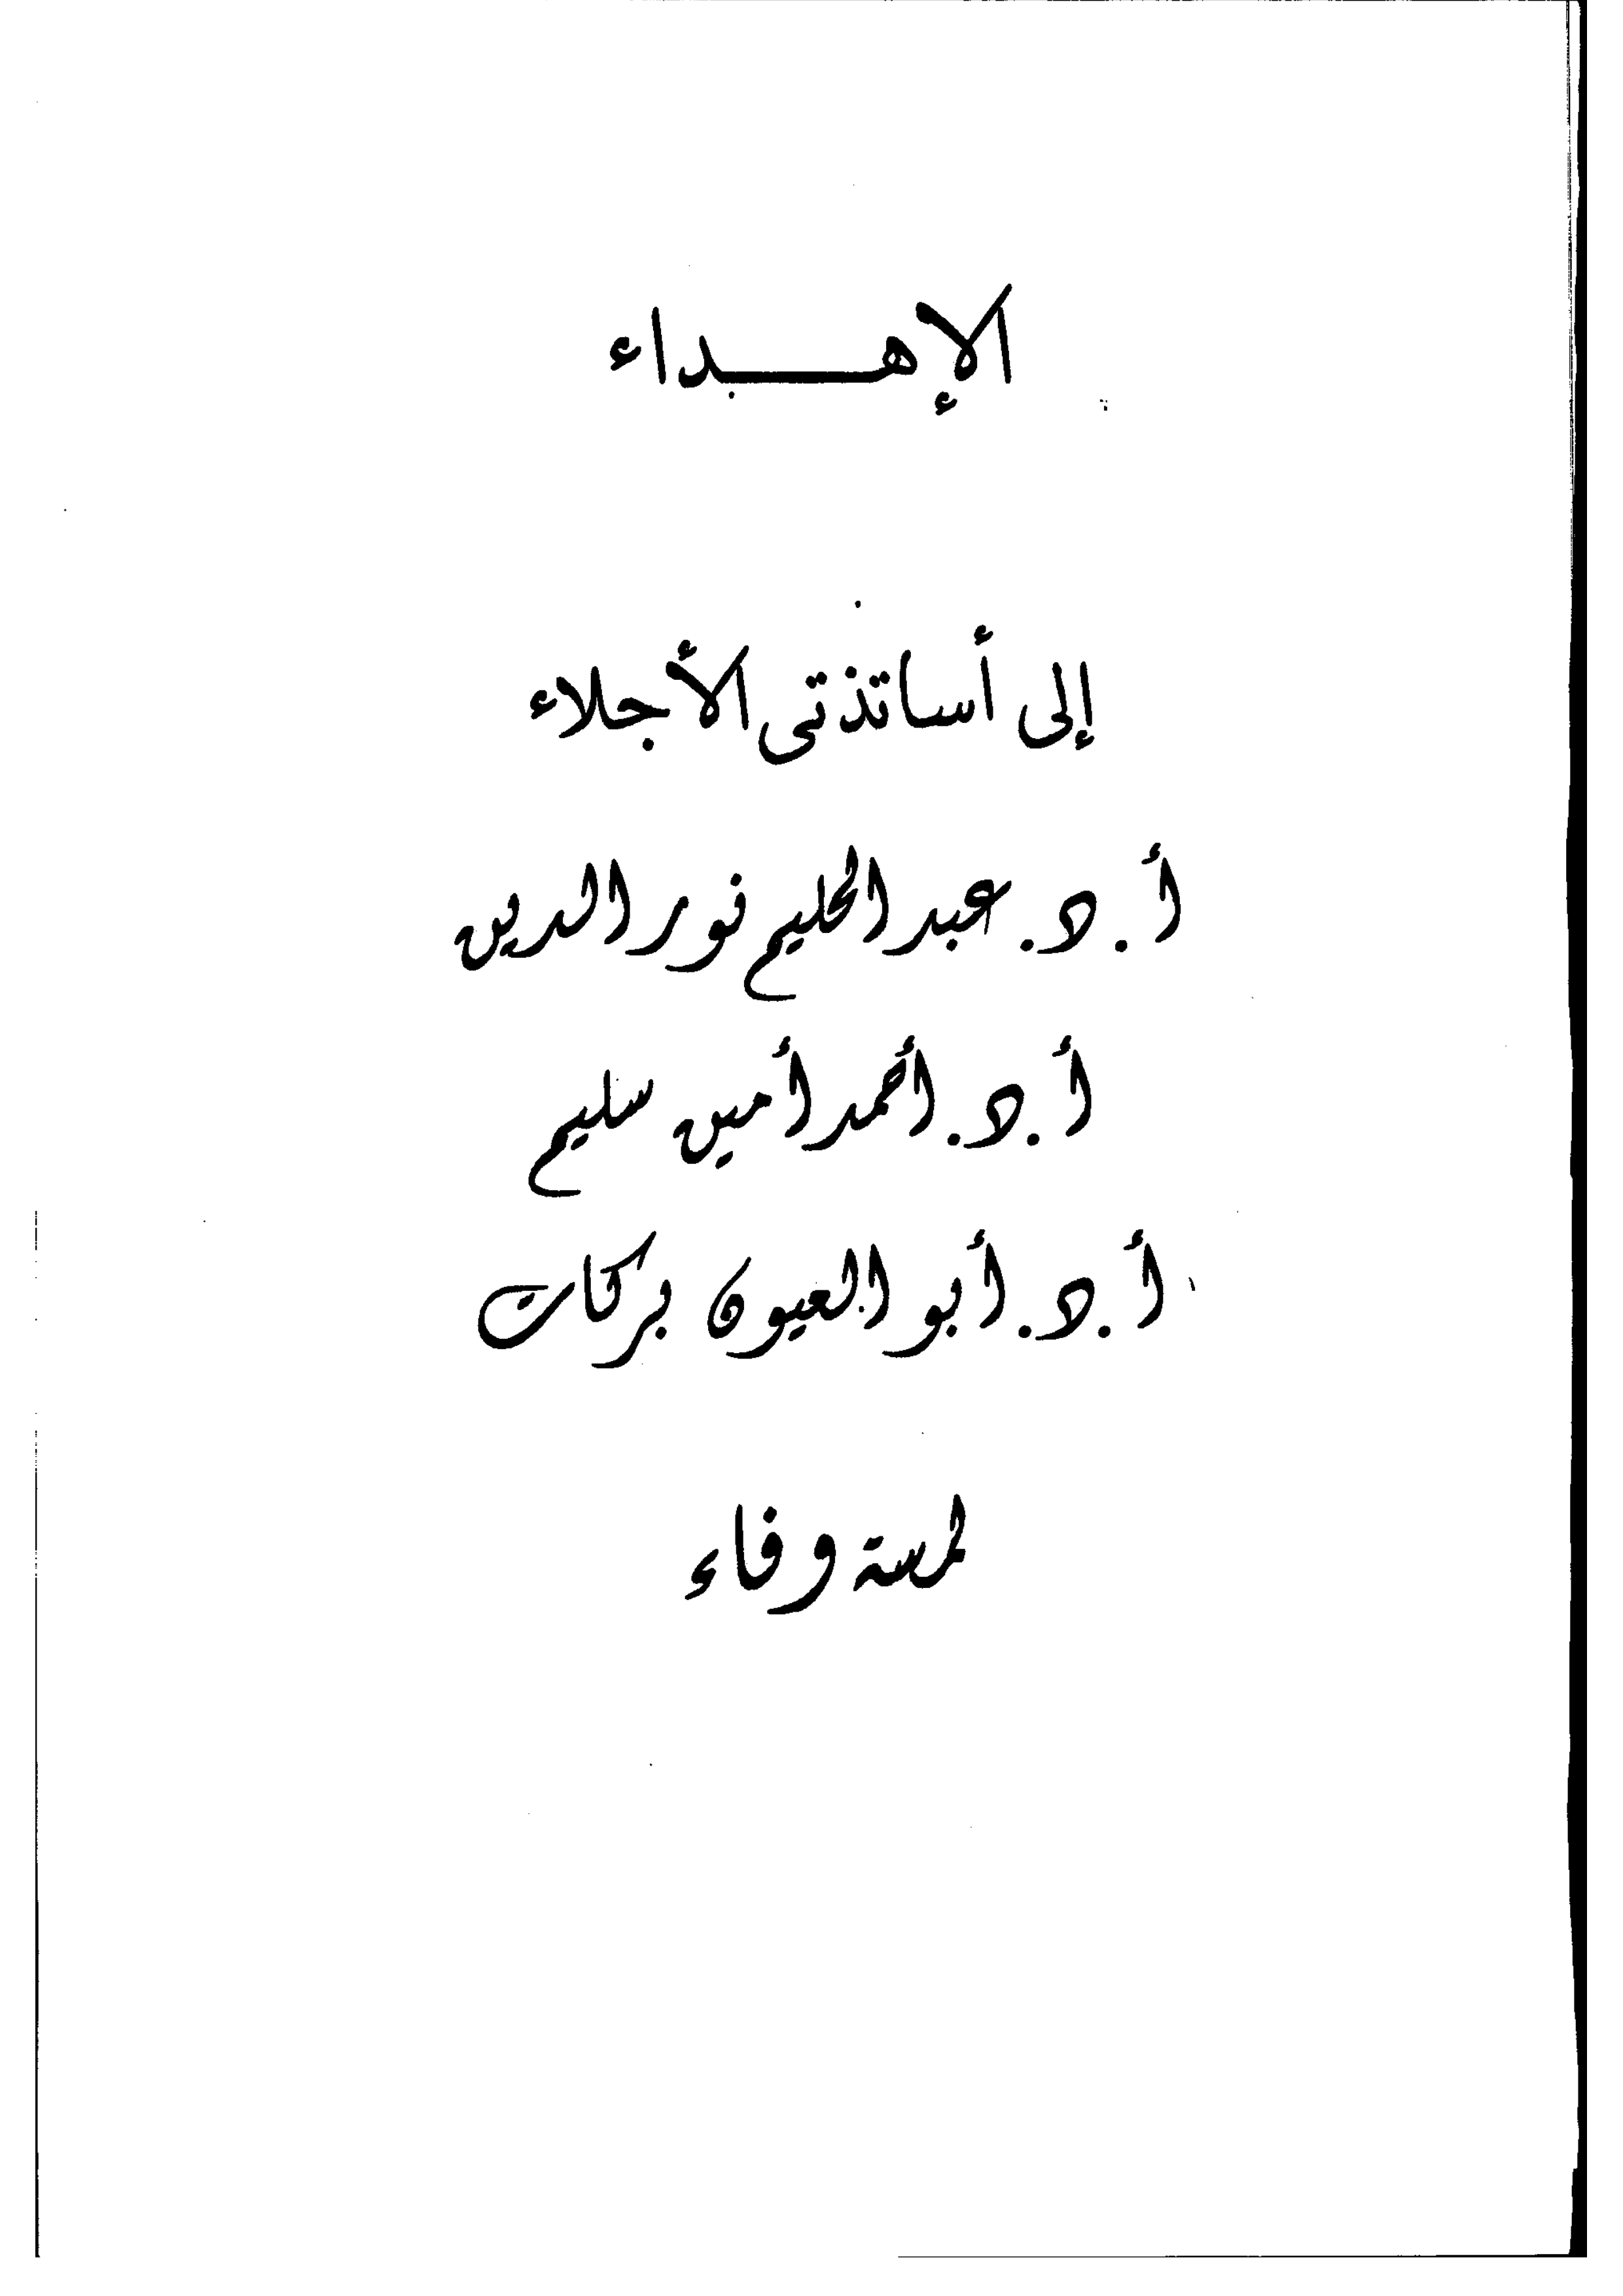 الإهـــداء
إلى أساتذتى الأجلاء
أ.د. عبد الحليم نور الدين
أ.د. أحمد أمين سليم
أ.د. أبو العيون بركات
لمسة وفاء